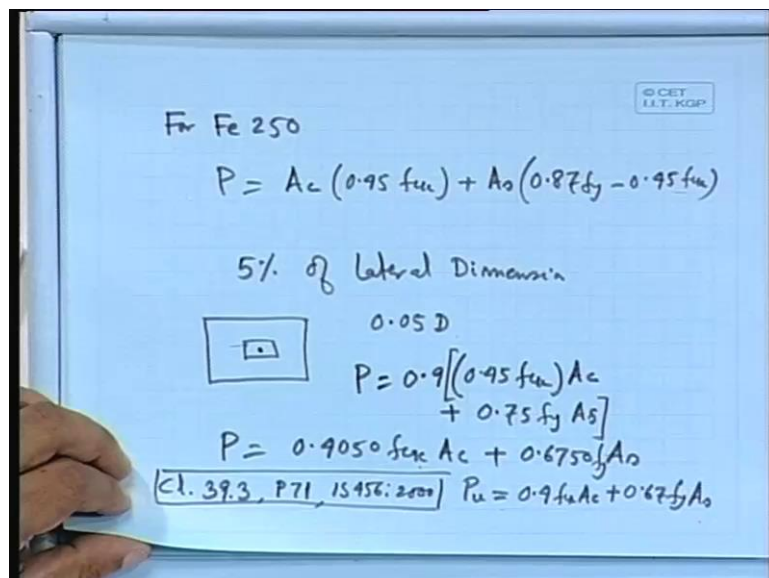 © CET
I.I.T. KGP
For Fe 250
P = Ac (0.45 fck) + As (0.87fy - 0.45 fck)
5% of Lateral Dimension
0.05 D
P = 0.9[(0.45 fck) Ac
+ 0.75 fy As]
P = 0.4050 fck Ac + 0.6750 fy As
Cl. 39.3, P71, IS 456:2000 Pu = 0.4 fck Ac + 0.67 fy As